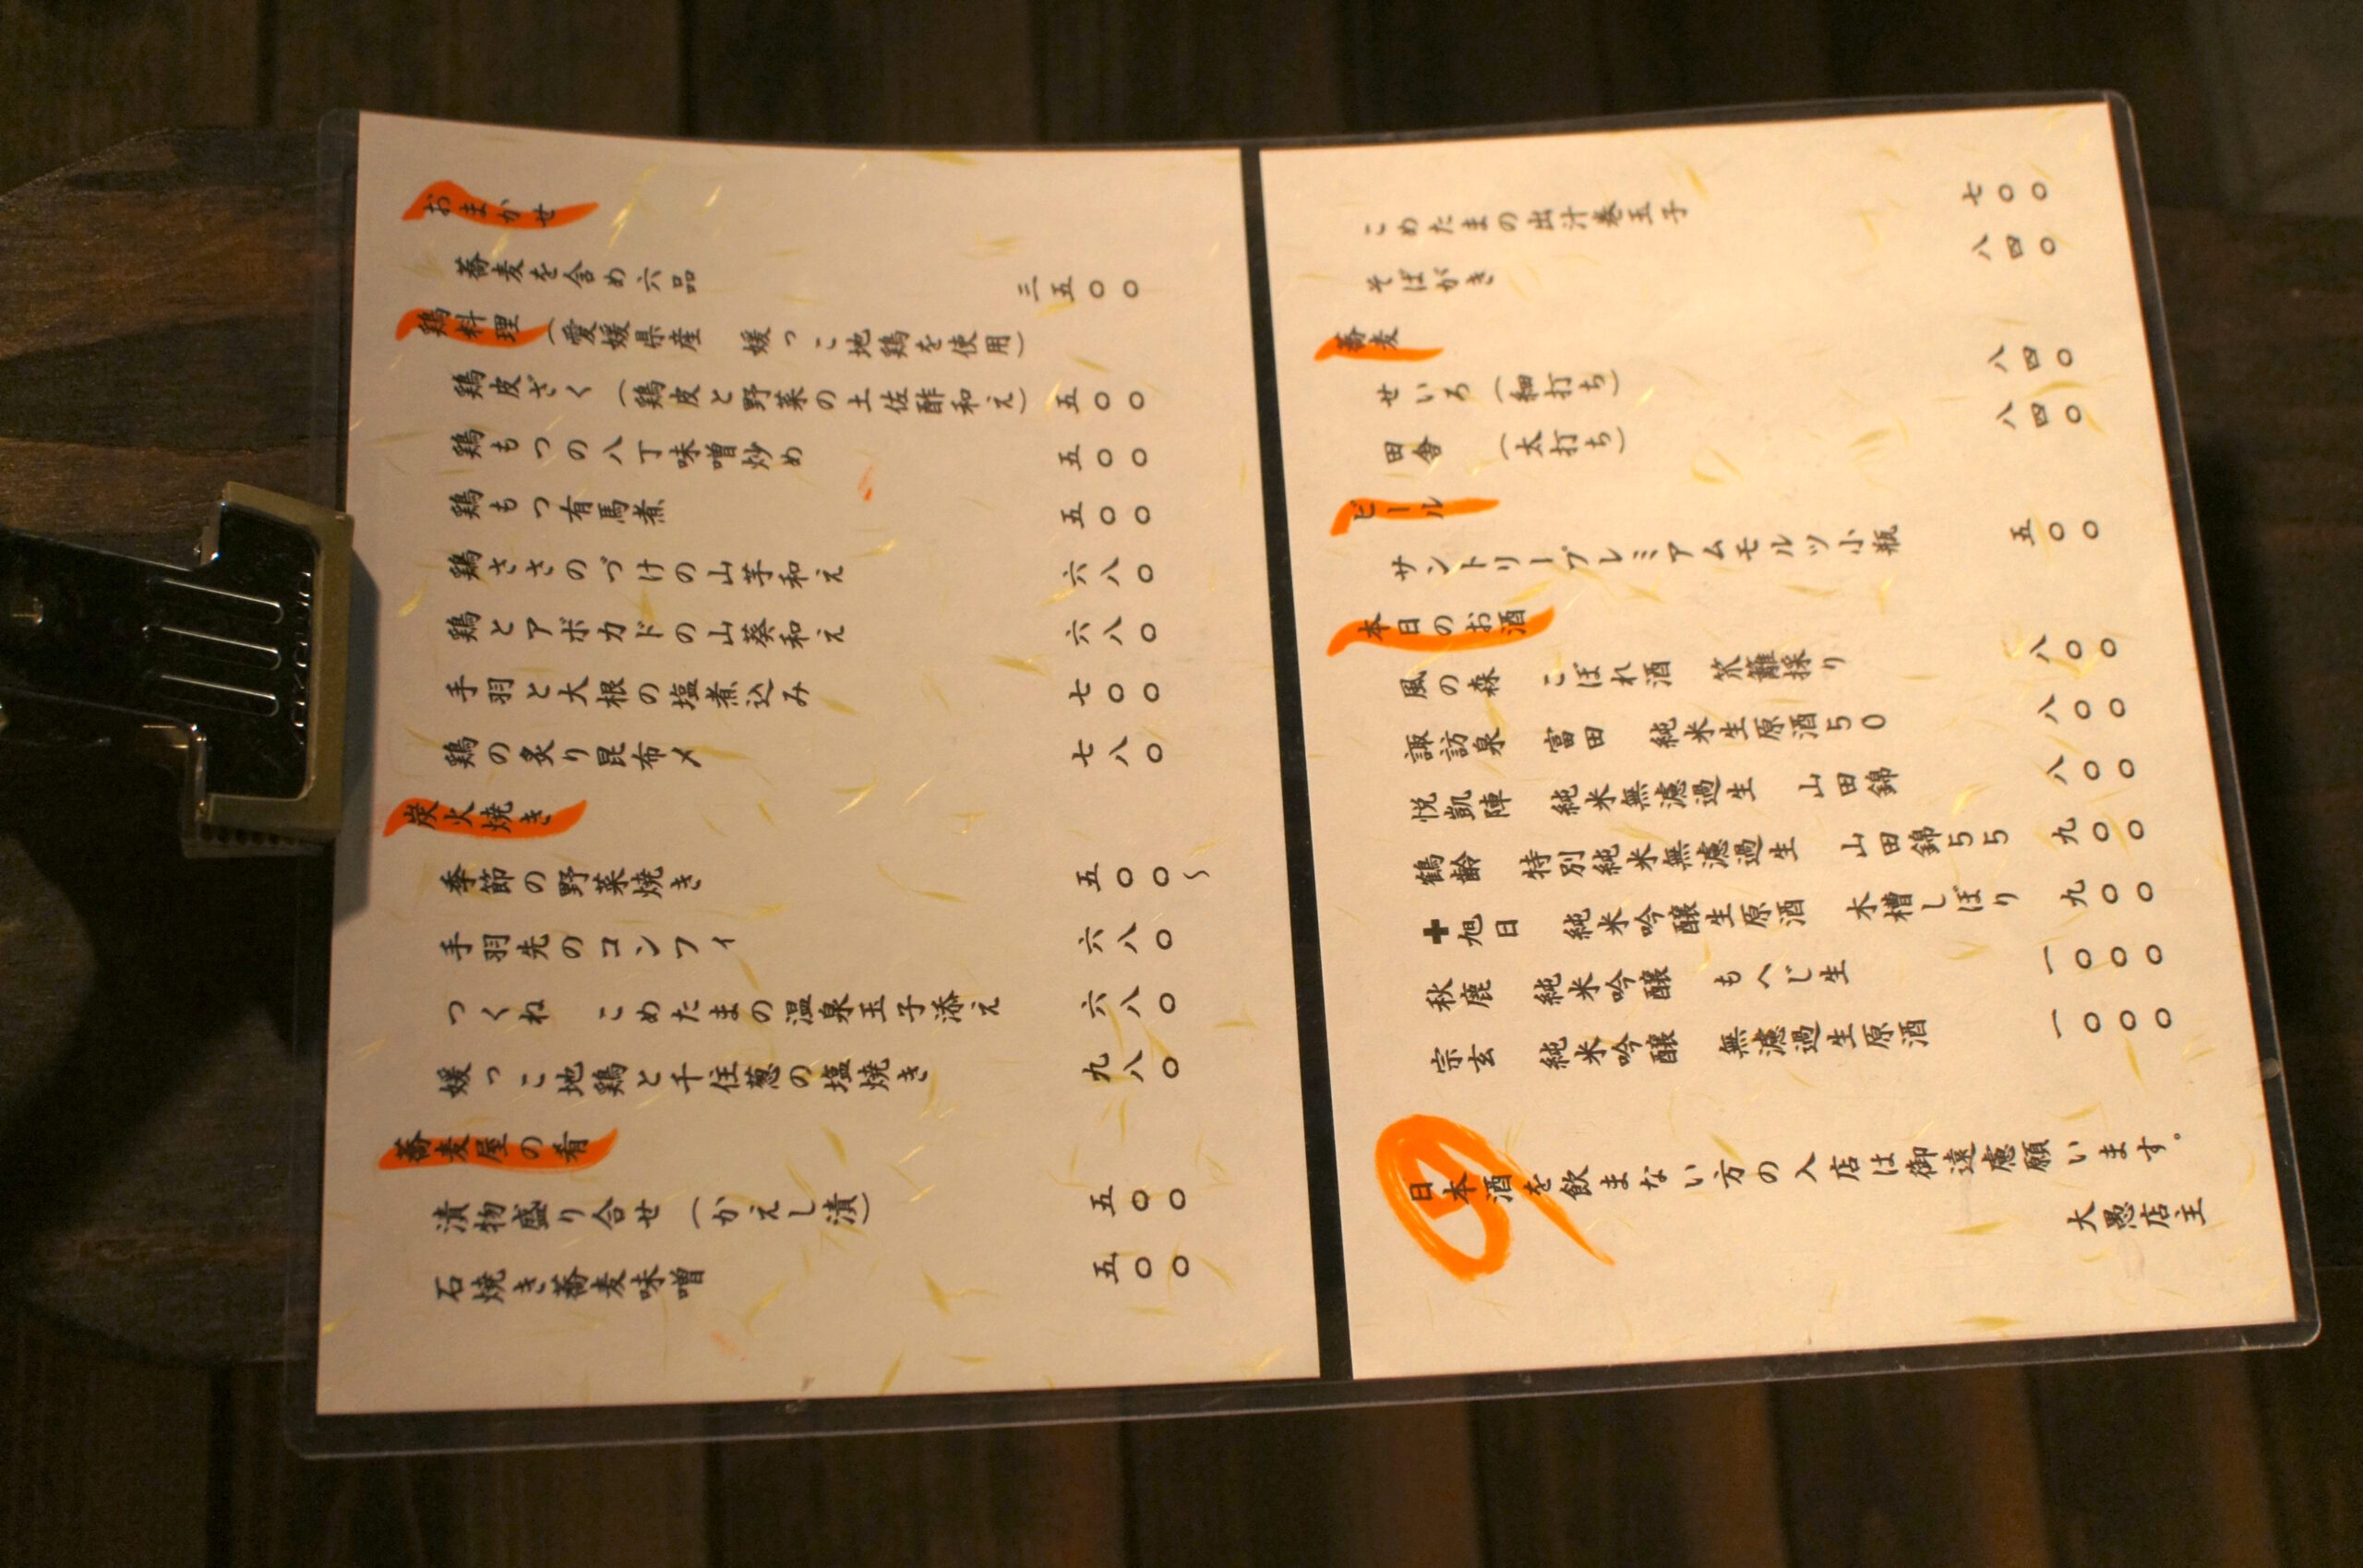 おまかせ
蕎麦を含め六品 三五〇〇
鶏料理(愛媛県産 媛っこ地鶏を使用)
鶏皮ざく(鶏皮と野菜の土佐酢和え) 五〇〇
鶏もつの八丁味噌炒め 五〇〇
鶏もつ有馬煮 五〇〇
鶏ささのづけの山芋和え 六八〇
鶏とアボカドの山葵和え 六八〇
手羽と大根の塩煮込み 七〇〇
鶏の炙り昆布〆 七八〇
炭火焼き
季節の野菜焼き 五〇〇~
手羽先のコンフィ 六八〇
つくね こめたまの温泉玉子添え 六八〇
媛っこ地鶏と千住葱の塩焼き 九八〇
蕎麦屋の肴
漬物盛り合せ(かえし漬) 五〇〇
石焼き蕎麦味噌 五〇〇
こめたまの出汁巻玉子 七〇〇
そばがき 八四〇
蕎麦
せいろ(細打ち) 八四〇
田舎 (太打ち) 八四〇
ビール
サントリープレミアムモルツ小瓶 五〇〇
本日のお酒
風の森 こぼれ酒 笊籬採り 八〇〇
諏訪泉 富田 純米生原酒50 八〇〇
悦凱陣 純米無濾過生 山田錦 八〇〇
鶴齢 特別純米無濾過生 山田錦55 九〇〇
十旭日 純米吟醸生原酒 木槽しぼり 九〇〇
秋鹿 純米吟醸 もへじ生 一〇〇〇
宗玄 純米吟醸 無濾過生原酒 一〇〇〇
日本酒を飲まない方の入店は御遠慮願います。
大愚店主